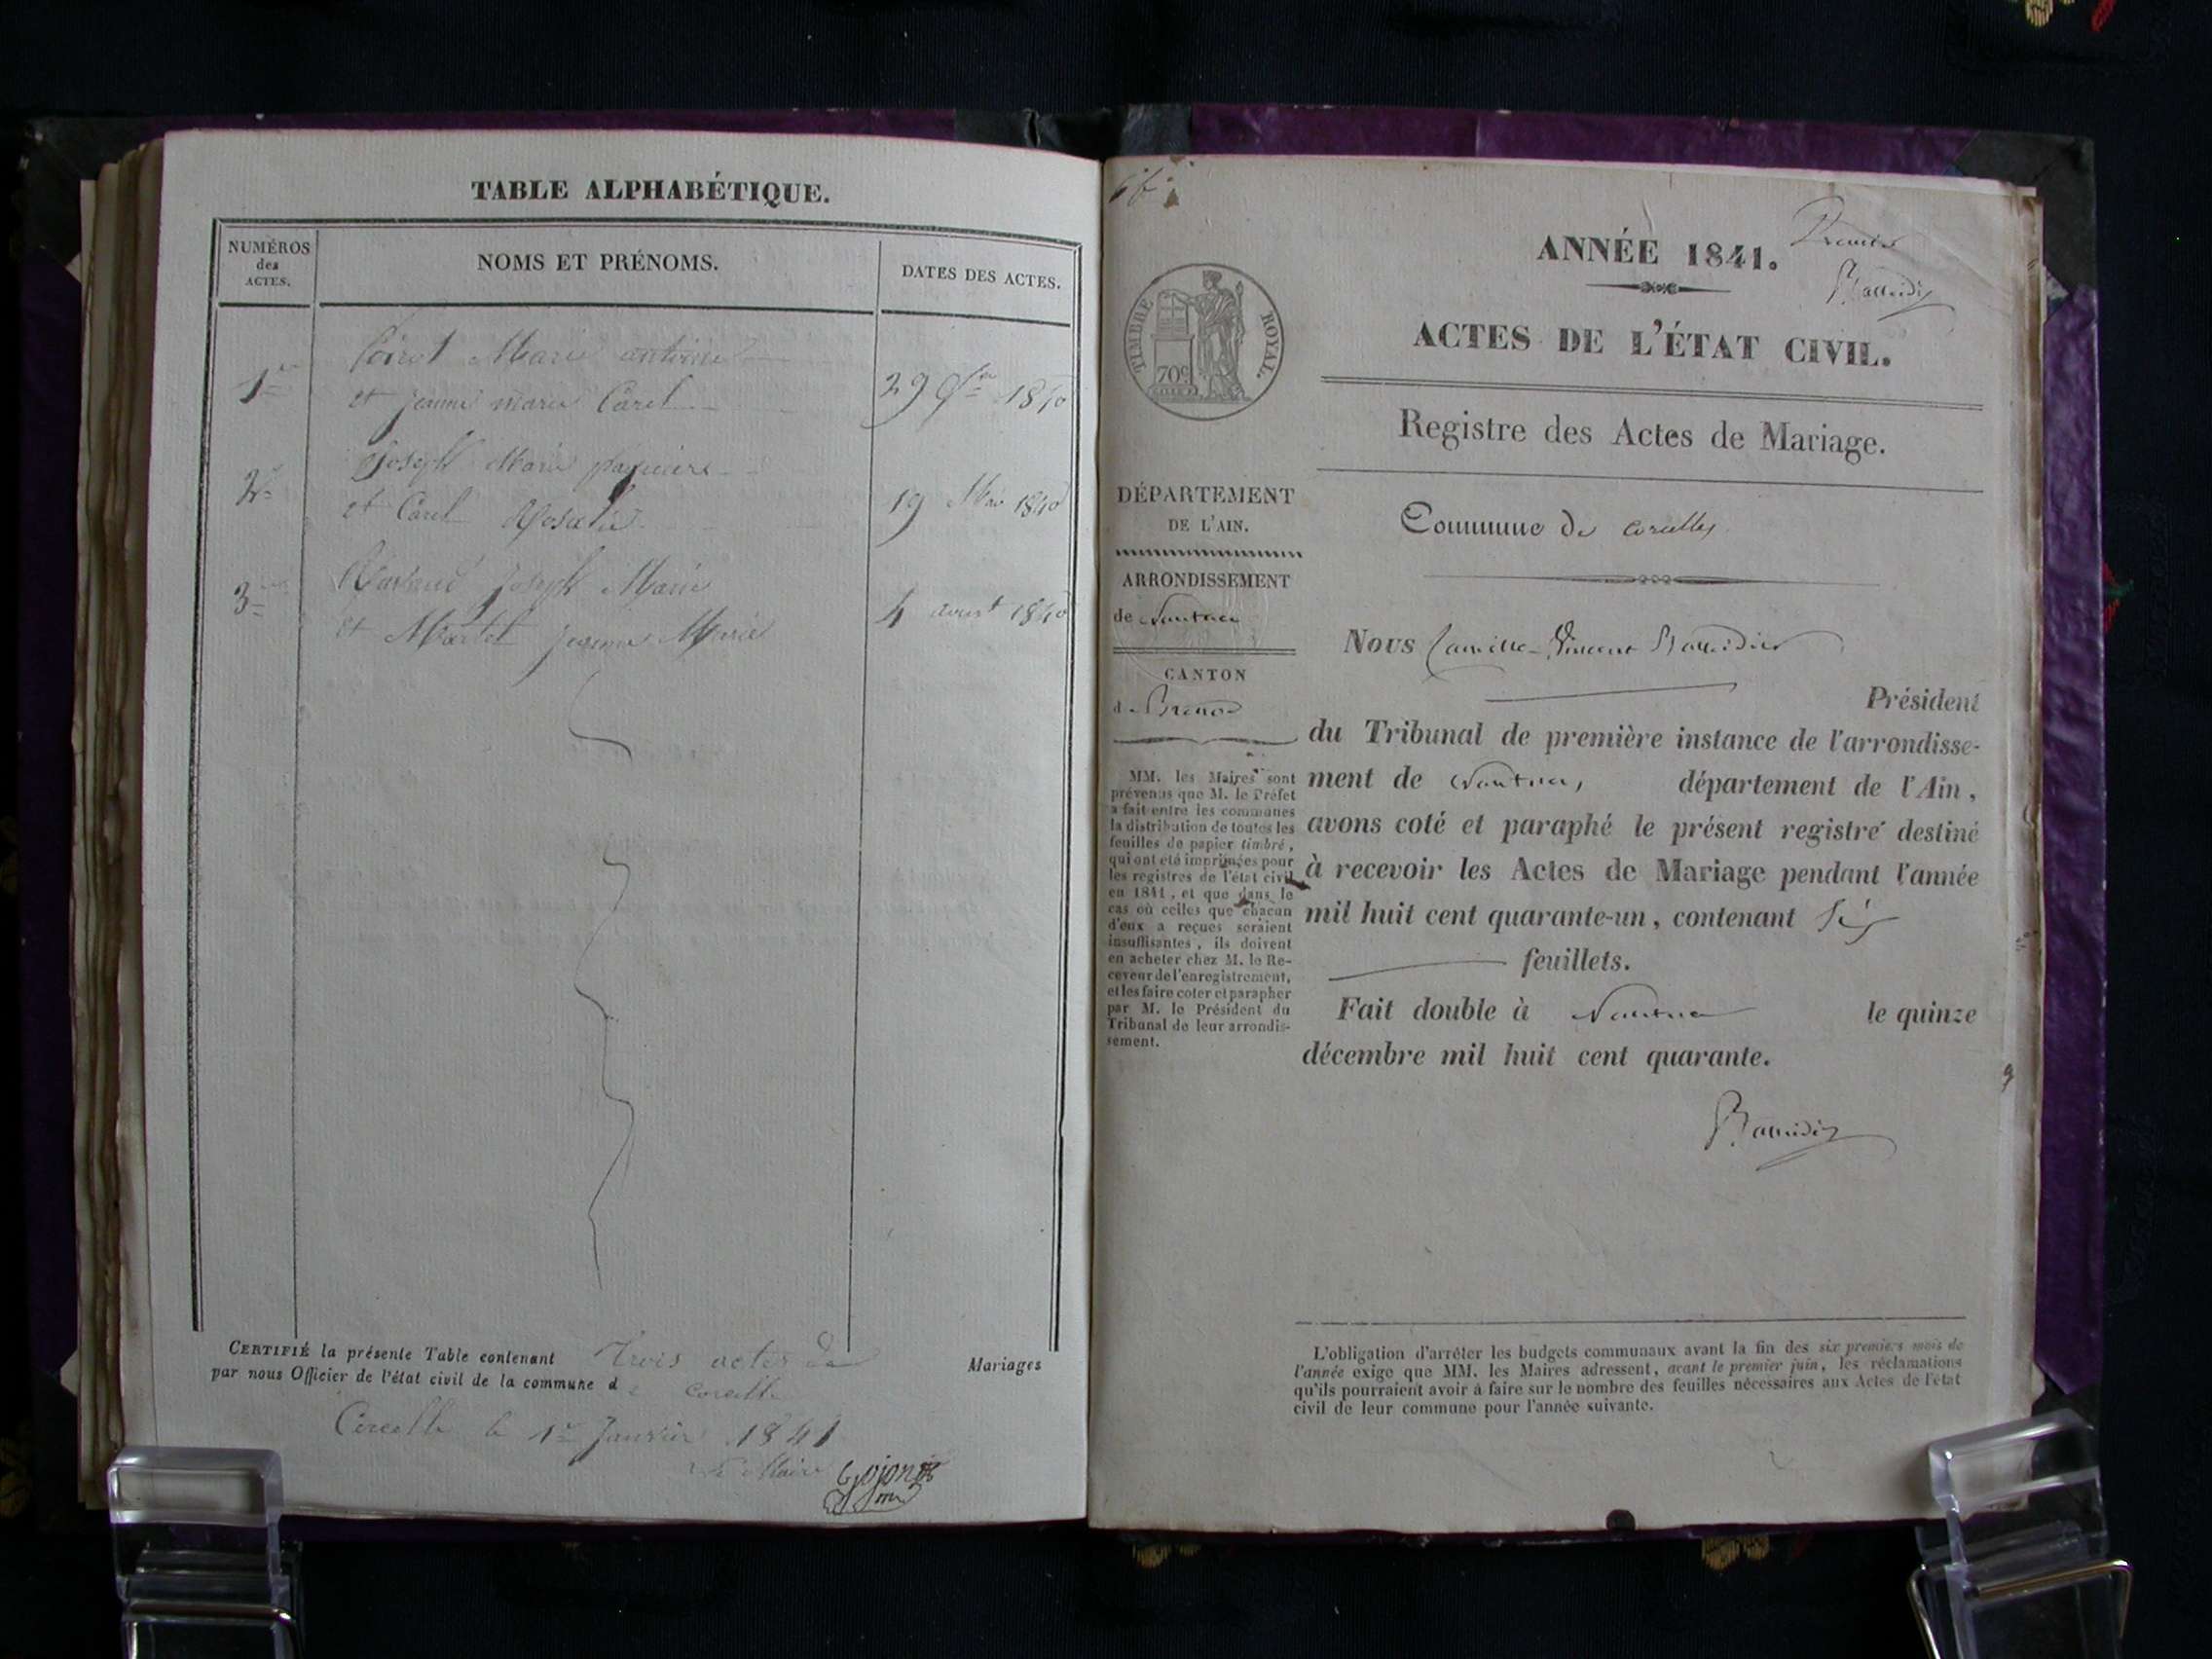 TABLE ALPHABÉTIQUE.
NUMÉROS
des
ACTES.
NOMS ET PRÉNOMS.
DATES DES ACTES.
Marie antoine
1er et jeanne marie Carel 29 1840
Joseph Marie
2e et Carel Rosalie 19 Mai 1840
Joseph Marie
3me et Martel jeanne Marie 4 aoust 1840
CERTIFIÉ la présente Table contenant Trois actes de Mariages
par nous Officier de l'état civil de la commune de Corcelle
Corcelle le 1er Janvier 1841
Le Maire
Gojon
ANNÉE 1841.
Premier
ACTES DE L'ÉTAT CIVIL.
TIMBRE ROYAL.
70c
Registre des Actes de Mariage.
DÉPARTEMENT
DE L'AIN.
ARRONDISSEMENT
de Nantua
CANTON
de Brenod
MM. les Maires sont
prévenus que M. le Préfet
a fait entre les communes
la distribution de toutes les
feuilles de papier timbré,
qui ont été imprimées pour
les registres de l'état civil
en 1841, et que dans le
cas où celles que chacun
d'eux a reçues seraient
insuffisantes, ils doivent
en acheter chez M. le Re-
ceveur de l'enregistrement,
et les faire coter et parapher
par M. le Président du
Tribunal de leur arrondis-
sement.
Commune de Corcelles
Nous Camille-Vincent
Président
du Tribunal de première instance de l'arrondisse-
ment de Nantua, département de l'Ain,
avons coté et paraphé le présent registre destiné
à recevoir les Actes de Mariage pendant l'année
mil huit cent quarante-un, contenant Six
feuillets.
Fait double à Nantua le quinze
décembre mil huit cent quarante.
L'obligation d'arrêter les budgets communaux avant la fin des six premiers mois de
l'année exige que MM. les Maires adressent, avant le premier juin, les réclamations
qu'ils pourraient avoir à faire sur le nombre des feuilles nécessaires aux Actes de l'état
civil de leur commune pour l'année suivante.